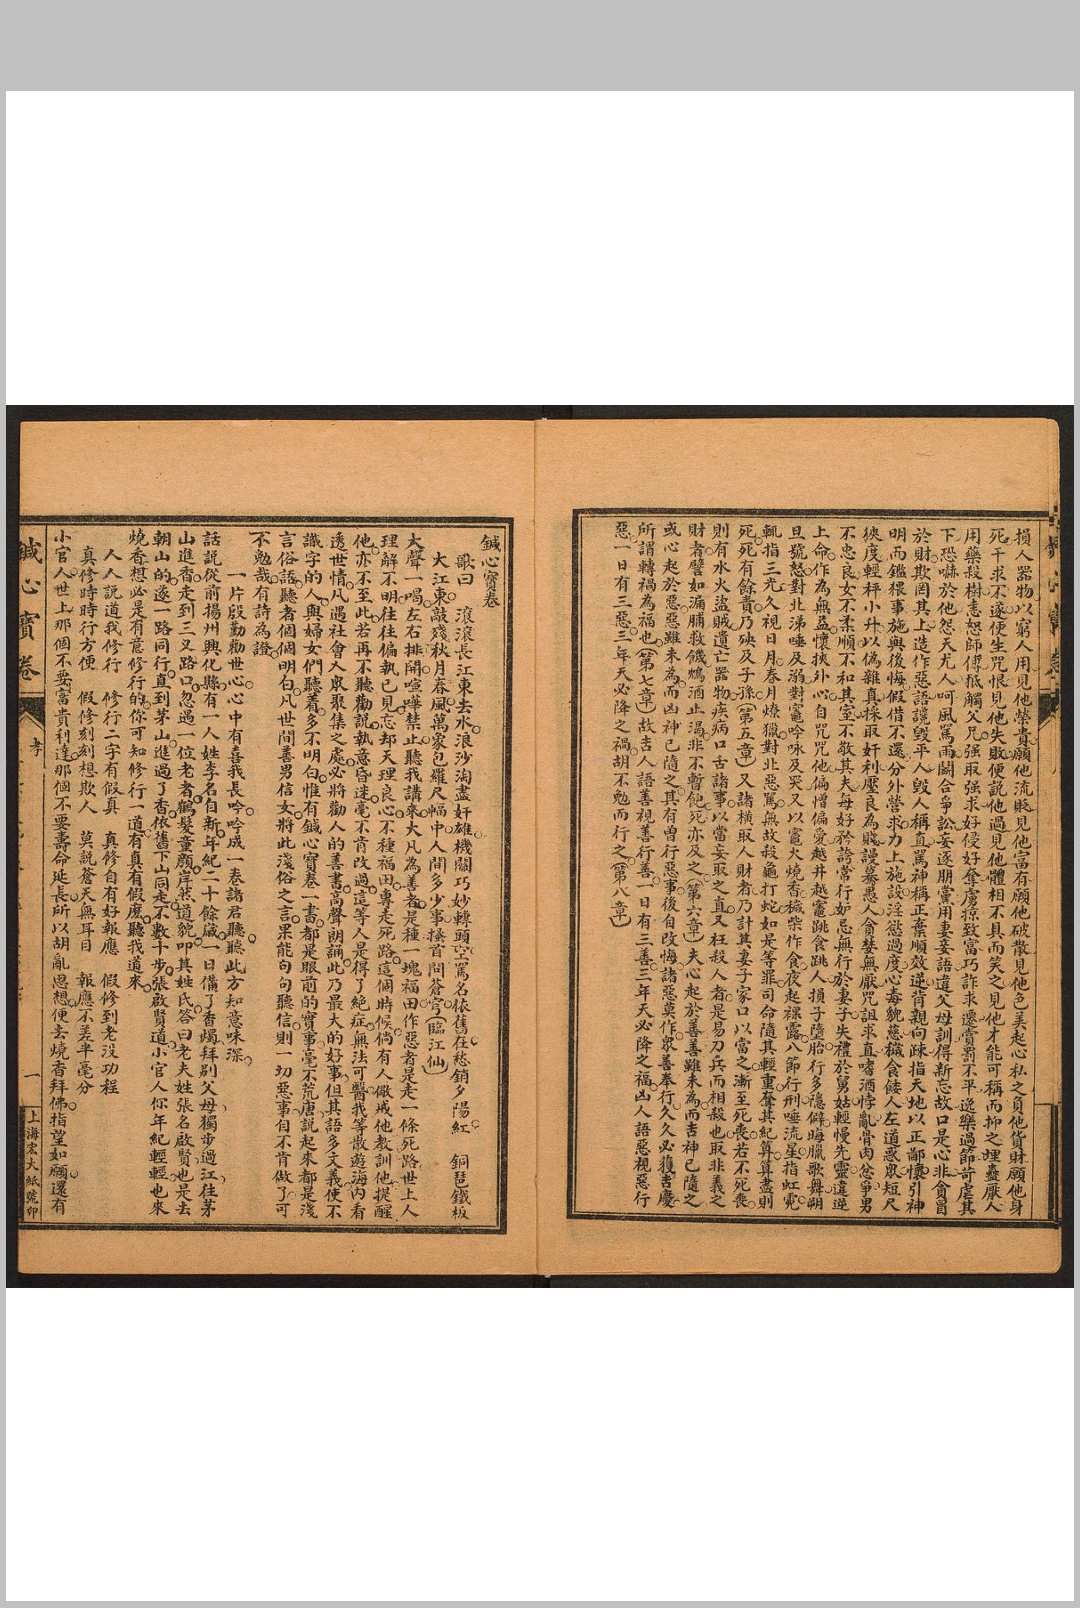 損人器物以窮人用見他榮貴願他流貶見他富有願他破散見他色美起心私之負他貨財願他身
死干求不遂便生咒恨見他失敗便說他過見他體相不具而笑之見他才能可稱而抑之埋蠱厭人
用藥殺樹恚怒師傅抵觸父兄强取强求好侵好奪虜掠致富巧詐求遷賞罰不平逸樂過節苛虐其
下恐嚇於他怨天尤人呵風罵雨鬭合爭訟妄逐朋黨用妻妾語違父母訓得新忘故口是心非貪冒
於財欺罔其上造作惡語讒毀平人毀人稱直罵神稱正棄順效逆背親向疎指天地以正鄙懷引神
明而鑑猥事施與後悔假借不還分外營求力上施設淫慾過度心毒貌慈穢食餧人左道惑衆短尺
狹度輕秤小升以偽雜真採取奸利壓良為賤謾驀愚人貪婪無厭咒詛求直嗜酒悖亂骨肉忿爭男
不忠良女不柔順不和其室不敬其夫每好矜誇常行妒忌無行於妻子失禮於舅姑輕慢先靈違逆
上命作為無益懷挾外心自咒咒他偏憎偏愛越井越竈跳食跳人損子墮胎行多隱僻晦臘歌舞朔
旦號怒對北涕唾及溺對竈吟咏及哭又以竈火燒香穢柴作食夜起裸露八節行刑唾流星指虹霓
輒指三光久視日月春月燎獵對北惡罵無故殺龜打蛇如是等罪司命隨其輕重奪其紀算算盡則
死死有餘責乃殃及子孫(第五章)又諸橫取人財者乃計其妻子家口以當之漸至死喪若不死喪
則有水火盜賊遺亡器物疾病口舌諸事以當妄取之直又枉殺人者是易刀兵而相殺也取非義之
財者譬如漏脯救饑鴆酒止渴非不暫飽死亦及之(第六章)夫心起於善善雖未為而吉神已隨之
或心起於惡惡雖未為而凶神已隨之其有曾行惡事後自改悔諸惡莫作衆善奉行久久必獲吉慶
所謂轉禍為福也(第七章)故吉人語善視善行善一日有三善三年天必降之福凶人語惡視惡行
惡一日有三惡三年天必降之禍胡不勉而行之(第八章)
鍼心寶卷
歌曰 滾滾長江東去水浪沙淘盡奸雄機關巧妙轉頭空罵名依舊在愁銷夕陽紅 銅琶鐵板
大江東敲殘秋月春風萬家包羅尺幅中人間多少事搔首問蒼穹(臨江仙)
大聲一喝左右排開喧嘩禁止聽我講來大凡為善者是種一塊福田作惡者是走一條死路世上人
理解不明往往偏執己見忘却天理良心不種福田專走死路這個時候倘有人儆戒他教訓他提醒
他亦不至此若再不聽勸說執意昏迷毫不肯改過這等人是得了絕症無法可醫我等散遊海內看
透世情凡遇社會人衆聚集之處必將勸人的善書高聲朗誦此乃最大的好事但其語多文義使不
識字的人與婦女們聽着多不明白惟有鍼心寶卷一書都是眼前的實事毫不荒唐說起來都是淺
言俗語聽者個個明白凡世間善男信女將此淺俗之言果能句句聽信則一切惡事自不肯做了可
不勉哉有詩為證
一片殷勤勸世心 心中有喜我長吟 吟成一卷諸君聽 聽此方知意味深
話說從前揚州興化縣有一人姓李名自新年紀二十餘歲一日備了香燭拜別父母獨步過江往茅
山進香走到三叉路口忽遇一位老者鶴髮童顏岸然道貌叩其姓氏答曰老夫姓張名啟賢也是去
朝山的遂一路同行直到茅山進過了香依舊下山同走不數十步張啟賢道小官人你年紀輕輕也來
燒香想必是有意修行的你可知修行一道有真有假麼聽我道來
人人說道我修行 修行二字有假真 真修自有好報應 假修到老沒功程
真修時時行方便 假修刻刻想欺人 莫說蒼天無耳目 報應不差半毫分
小官人世上那個不要富貴利達那個不要壽命延長所以胡亂思想便去燒香拜佛指望如願還有
鍼心寶卷
孝
一
上海宏大紙號印